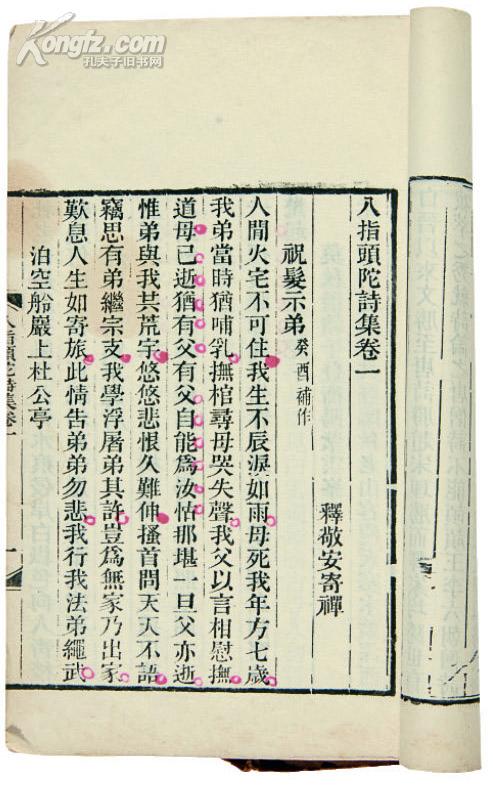 Kongfz.com
孔夫子旧书网
八指頭陀詩集卷一
釋敬安寄禪
祝髮示弟 癸酉補作
人閒火宅不可住我生不辰淚如雨母死我年方七歲
我弟當時猶哺乳撫棺尋母哭失聲我父以言相慰撫
道母已逝猶有父有父自能爲汝怙那堪一旦父亦逝
惟弟與我共荒宇悠悠悲恨久難伸搔首問天天不語
竊思有弟繼宗支我學浮屠弟其許豈爲無家乃出家
歎息人生如寄旅此情告弟弟勿悲我行我法弟繩武
泊空舲巖上杜公亭
八指頭陀詩集卷一
一